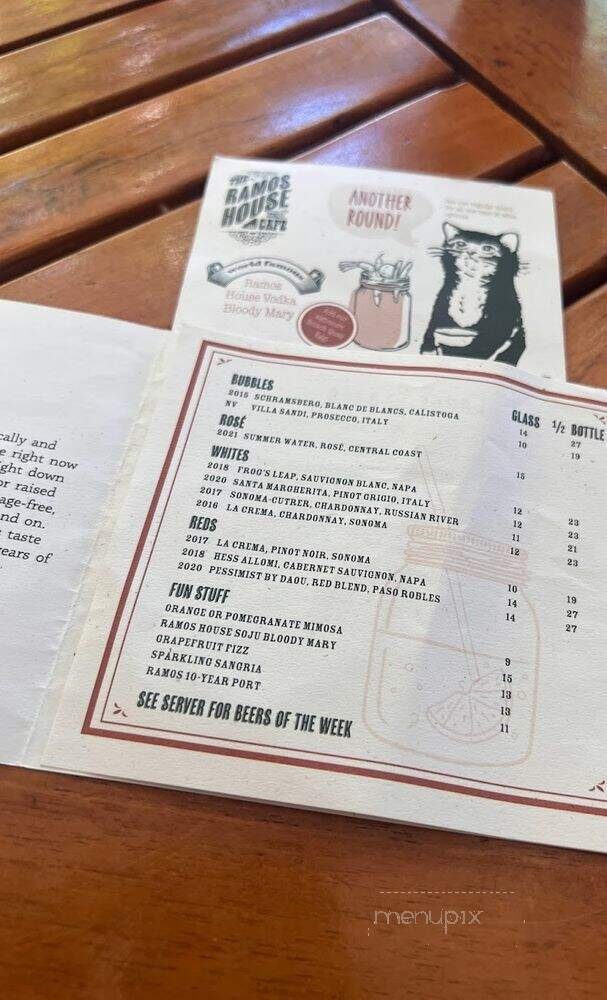 THE
RAMOS
HOUSE
CAFE
ANOTHER
ROUND!
world famous
Ramos
House Vodka
Bloody Mary
GLASS 1/2 BOTTLE
BUBBLES
2015 SCHRAMSBERG, BLANC DE BLANCS, CALISTOGA 14 27
NV VILLA SANDI, PROSECCO, ITALY 10 19
ROSÉ
2021 SUMMER WATER, ROSÉ, CENTRAL COAST 15
WHITES
2018 FROG'S LEAP, SAUVIGNON BLANC, NAPA 12 23
2020 SANTA MARGHERITA, PINOT GRIGIO, ITALY 12 23
2017 SONOMA-CUTRER, CHARDONNAY, RUSSIAN RIVER 11 21
2016 LA CREMA, CHARDONNAY, SONOMA 12 23
REDS
2017 LA CREMA, PINOT NOIR, SONOMA 10 19
2018 HESS ALLOMI, CABERNET SAUVIGNON, NAPA 14 27
2020 PESSIMIST BY DAOU, RED BLEND, PASO ROBLES 14 27
FUN STUFF
ORANGE OR POMEGRANATE MIMOSA 9
RAMOS HOUSE SOJU BLOODY MARY 15
GRAPEFRUIT FIZZ 13
SPARKLING SANGRIA 13
RAMOS 10-YEAR PORT 11
SEE SERVER FOR BEERS OF THE WEEK
cally and
e right now
ight down
or raised
age-free,
nd on.
taste
ears of
menupix